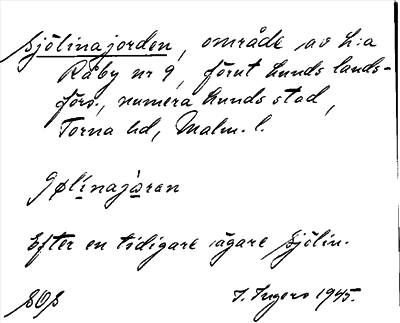 Sjölinajorden, område av h:a
Råby nr 9, förut Lunds lands-
förs., numera Lunds stad,
Torna hd, Malm. l.
Efter en tidigare ägare Sjölin.
SOS I. Ingers 1945.